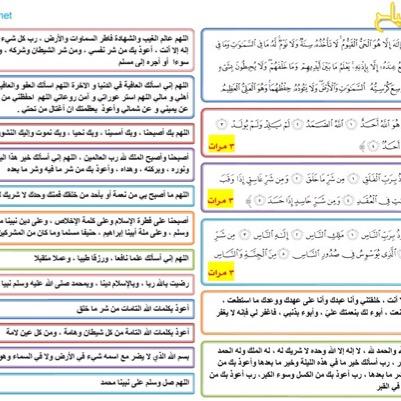 net
اح
إلَهَ إِلَّا هُوَ الْحَيُّ الْقَيُّومُ لَا تَأْخُذُهُ سِنَةٌ وَلَا نَوْمٌ لَهُ مَا فِي السَّمَاوَاتِ وَمَا فِي
عِنْدَهُ إِلَّا بِإِذْنِهِ يَعْلَمُ مَا بَيْنَ أَيْدِيهِمْ وَمَا خَلْفَهُمْ وَلَا يُحِيطُونَ بِشَيْءٍ
وَسِعَ كُرْسِيُّهُ السَّمَاوَاتِ وَالْأَرْضَ وَلَا يَئُودُهُ حِفْظُهُمَا وَهُوَ الْعَلِيُّ الْعَظِيمُ
هُوَ اللَّهُ أَحَدٌ ۝ اللَّهُ الصَّمَدُ ۝ لَمْ يَلِدْ وَلَمْ يُولَدْ ۝
أَحَدٌ ۝ ٣ مرات
بِرَبِّ الْفَلَقِ ۝ مِنْ شَرِّ مَا خَلَقَ ۝ وَمِنْ شَرِّ غَاسِقٍ إِذَا وَقَبَ
فِي الْعُقَدِ ۝ وَمِنْ شَرِّ حَاسِدٍ إِذَا حَسَدَ ۝ ٣ مرات
بِرَبِّ النَّاسِ ۝ مَلِكِ النَّاسِ ۝ إِلَهِ النَّاسِ ۝
الَّذِي يُوَسْوِسُ فِي صُدُورِ النَّاسِ ۝ مِنَ الْجِنَّةِ وَالنَّاسِ
٣ مرات
أنت ، خلقتني وأنا عبدك وأنا على عهدك ووعدك ما استطعت ،
صنعت ، أبوء لك بنعمتك علي ، وأبوء بذنبي ، فاغفر لي فإنه لا يغفر
والحمد لله ، لا إله إلا الله وحده لا شريك له ، له الملك وله الحمد
، رب أسألك خير ما في هذه الليلة وخير ما بعدها وأعوذ بك من
شر ما بعدها ، رب أعوذ بك من الكسل وسوء الكبر، رب أعوذ بك من
في القبر
اللهم عالم الغيب والشهادة فاطر السماوات والأرض ، رب كل شيء
إله إلا أنت ، أعوذ بك من شر نفسي ، ومن شر الشيطان وشركه ،
سوءا أو أجره إلى مسلم
اللهم إني أسألك العافية في الدنيا و الاخرة اللهم اسألك العفو والعافية
أهلي و مالي اللهم استر عوراتي و آمن روعاتي اللهم احفظني من
وعن شمالي و من فوقي وأعوذ بعظمتك ان أغتال من تحتي
اللهم بك أصبحنا ، وبك أمسينا ، وبك نحيا ، وبك نموت وإليك النشور
أصبحنا وأصبح الملك لله رب العالمين ، اللهم إني أسألك خير هذا اليوم
ونوره ، وبركته ، وهداه ، وأعوذ بك من شر ما فيه وشر ما بعده
اللهم ما أصبح بي من نعمة أو بأحد من خلقك فمنك وحدك لا شريك لك
أصبحنا على فطرة الإسلام وعلى كلمة الإخلاص ، وعلى دين نبينا
وسلم ، وعلى ملة أبينا إبراهيم ، حنيفا مسلما وما كان من المشركين
اللهم إني أسألك علما نافعا ، ورزقا طيبا ، وعملا متقبلا
رضيت بالله ربا ، وبالإسلام دينا ، وبمحمد صلى الله عليه وسلم نبيا
أعوذ بكلمات الله التامات من شر ما خلق
أعوذ بكلمات الله التامة من كل شيطان وهامة ، ومن كل عين لامة
بسم الله الذي لا يضر مع اسمه شيء في الأرض ولا في السماء وهو
اللهم صل وسلم على نبينا محمد